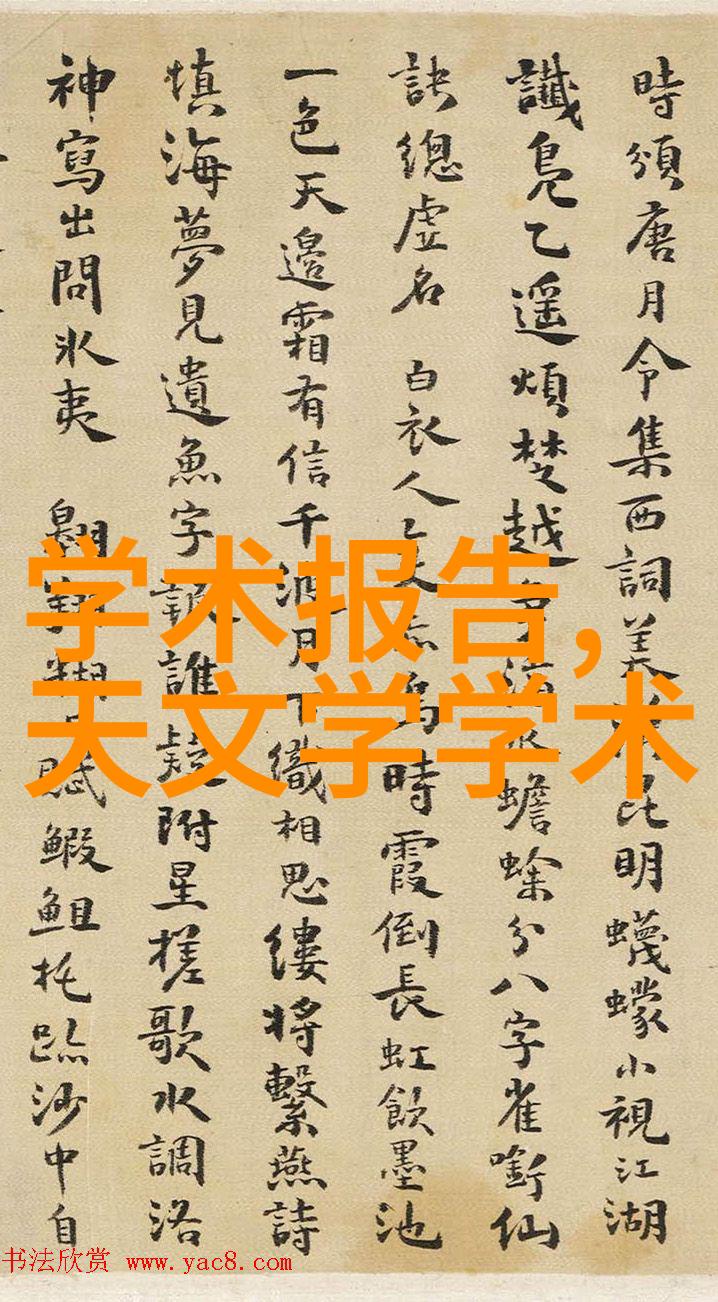 時頒唐月令集西詞美昆明蠛蠓小視江湖
讖鳧乙遥煩楚越蟾蜍分八字雀銜仙
訣總虚名 白衣人爲時霞倒長虹飲墨池
一色天邊霜有信千月下織相思縷將繫燕詩
填海夢見遺魚字報誰疑附星槎歌水調洛
神寫出問冰夷 翱翔賦鰕䱉托跡沙中自
学术报告,
天文学学术
书法欣赏 www.yac8.com